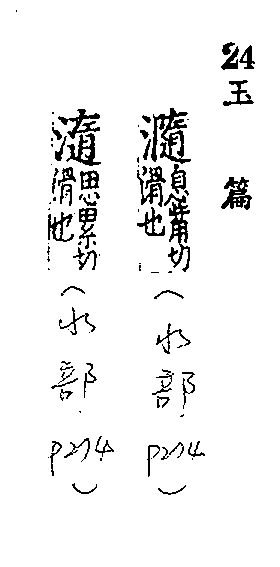 24玉篇
瀡息觜切
滑也
(水部 P274)
思累切
滑也
(水部 P274)